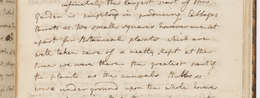 infinitely the largest part of this
garden is employed in producing Cabbages
there are two small squares however set
apart for Botanical plants which are
well taken care of & neatly kept at the
time we were there the greatest part of
the plants as the annuals Bulbs &c
were under ground upon the whole